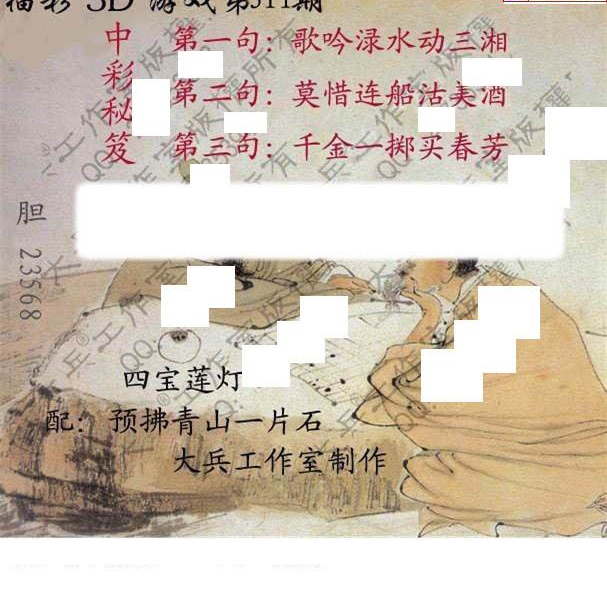 福彩3D游戏第311期
中彩秘笈
第一句：歌吟渌水动三湘
第二句：莫惜连船沽美酒
第三句：千金一掷买春芳
胆 23568
四宝莲灯
配：预拂青山一片石
大兵工作室制作